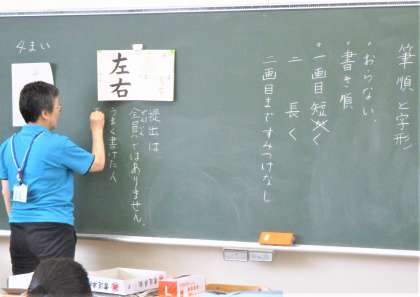 筆順と字形
・おらない、
・書き順
・一画目 短く
二 長く
二画目まですみつけなし
左右
提出は
全員ではありません。
うまく書けた人
4まい
L